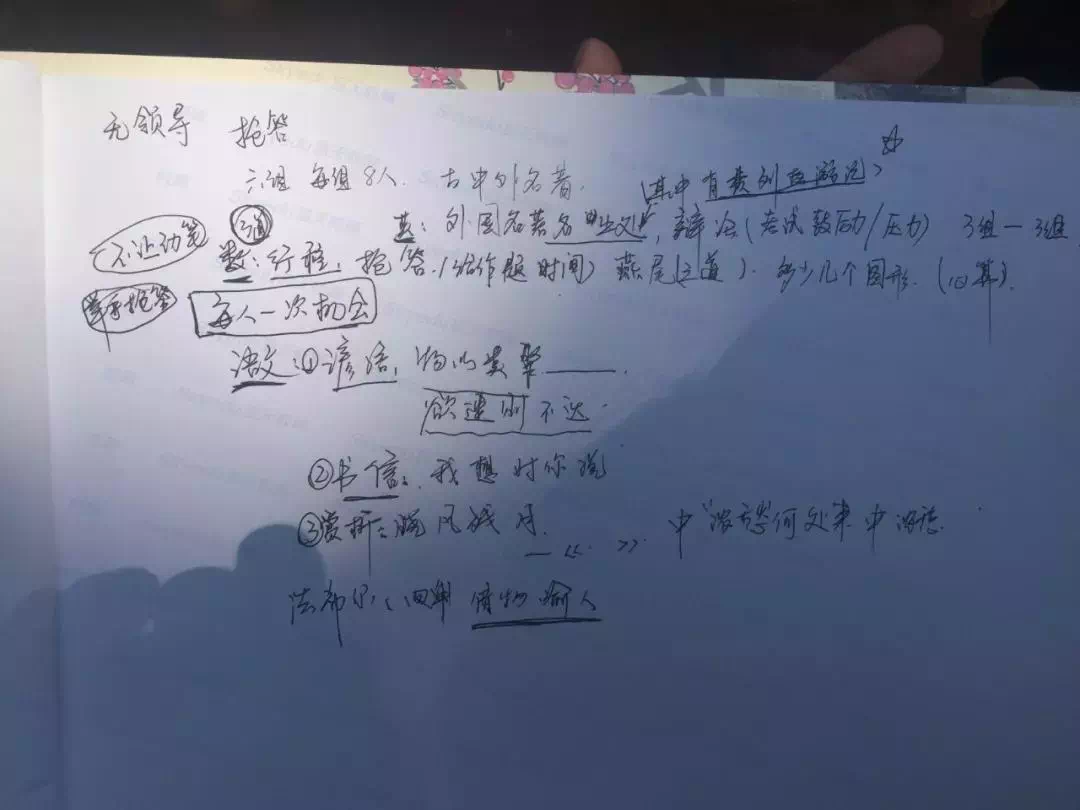 无领导 抢答
六组 每组8人. 古中外名著. (其中有
英: 外国名著名 , 辩论(考试鼓励/压力) 3组—3组
不让动笔 3道 数: 行程, 抢答.(给作题时间) 燕尾(2道). 多少几个图形. (口算).
举手抢答 每人一次机会
语文: ①谚语, 物以类聚____.
欲速则不达.
②书信: 我想对你说
③赏析: 晓风残月. —《 》 中"浓 愁何处来"中
法布尔: 借物喻人